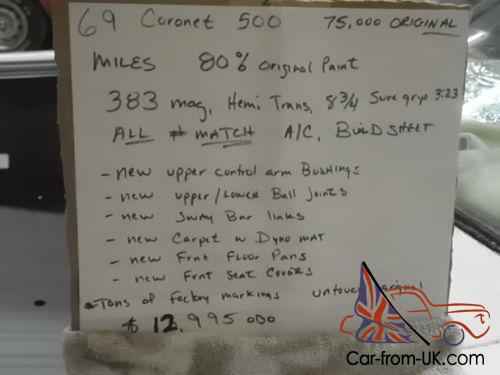 69 Coronet 500 75,000 ORIGINAL
MILES 80% Original Paint
383 mag, Hemi Trans, 8 3/4 Sure grip 3:23
ALL # MATCH A/C, BUILD SHEET
- new upper control arm Bushings
- new upper/LOWER Ball Joints
- new Sway Bar links
- new Carpet w Dyno mat
- new Frnt Floor Pans
- new Frnt Seat Covers
* Tons of Factory markings
$ 12,995 000
Car-from-UK.com